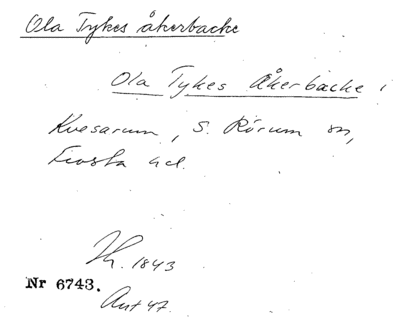 Ola Tykes åkerbacke
Ola Tykes Åkerbacke i
Kvesarum, S. Rörum sn,
Frosta hd.
Th. 1843
Nr 6743.
Ant 47.